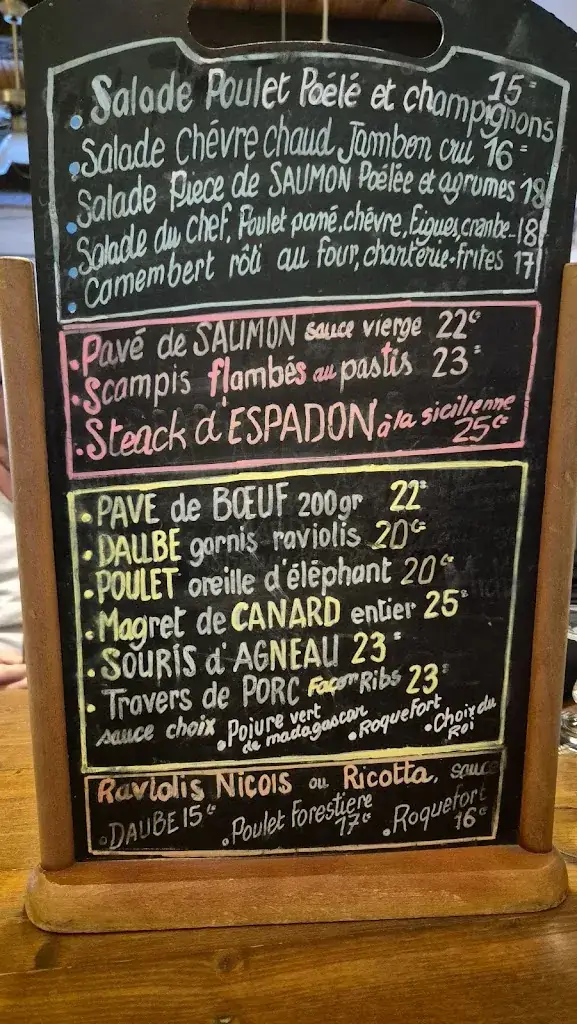 15=
• Salade Poulet Poélé et champignons
• Salade Chévre chaud Jambon cru 16=
• Salade Piece de SAUMON Poélée et agrumes 18
• Salade du chef, Poulet pané, chévre, Figues, cranbe- 18
• Camembert rôti au four, charterie-frites 17
• Pavé de SAUMON sauce vierge 22€
• Scampis flambés au pastis 23=
• Steack d'ESPADON à la sicilienne
25€
• PAVE de BŒUF 200gr 22=
• DAUBE garnis raviolis 20€
• POULET oreille d'éléphant 20€
• Magret de CANARD entier 25=
• SOURIS d'AGNEAU 23=
• Travers de PORC Façon Ribs 23=
sauce choix • Poivre vert de madagascar • Roquefort • Choix du Roi
Raviolis Niçois ou Ricotta, sauce
• DAUBE 15€ • Poulet Forestiere 17€ • Roquefort 16€